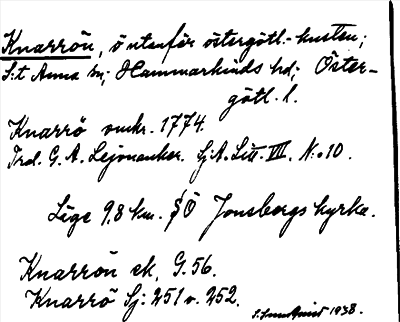 Knarrön, ö utanför östergötl.-kusten;
S:t Anna sn; Hammarkinds hd; Öster-
götl. l.
Knarrö omkr. 1774.
Trol. G. A. Lejonancker. SjA. Litt. VIII. N:o 10.
Läge 9,8 km. SÖ Jonsbergs kyrka.
Knarrön ek. G. 56.
Knarrö Sj: 251 v. 252.
1938.